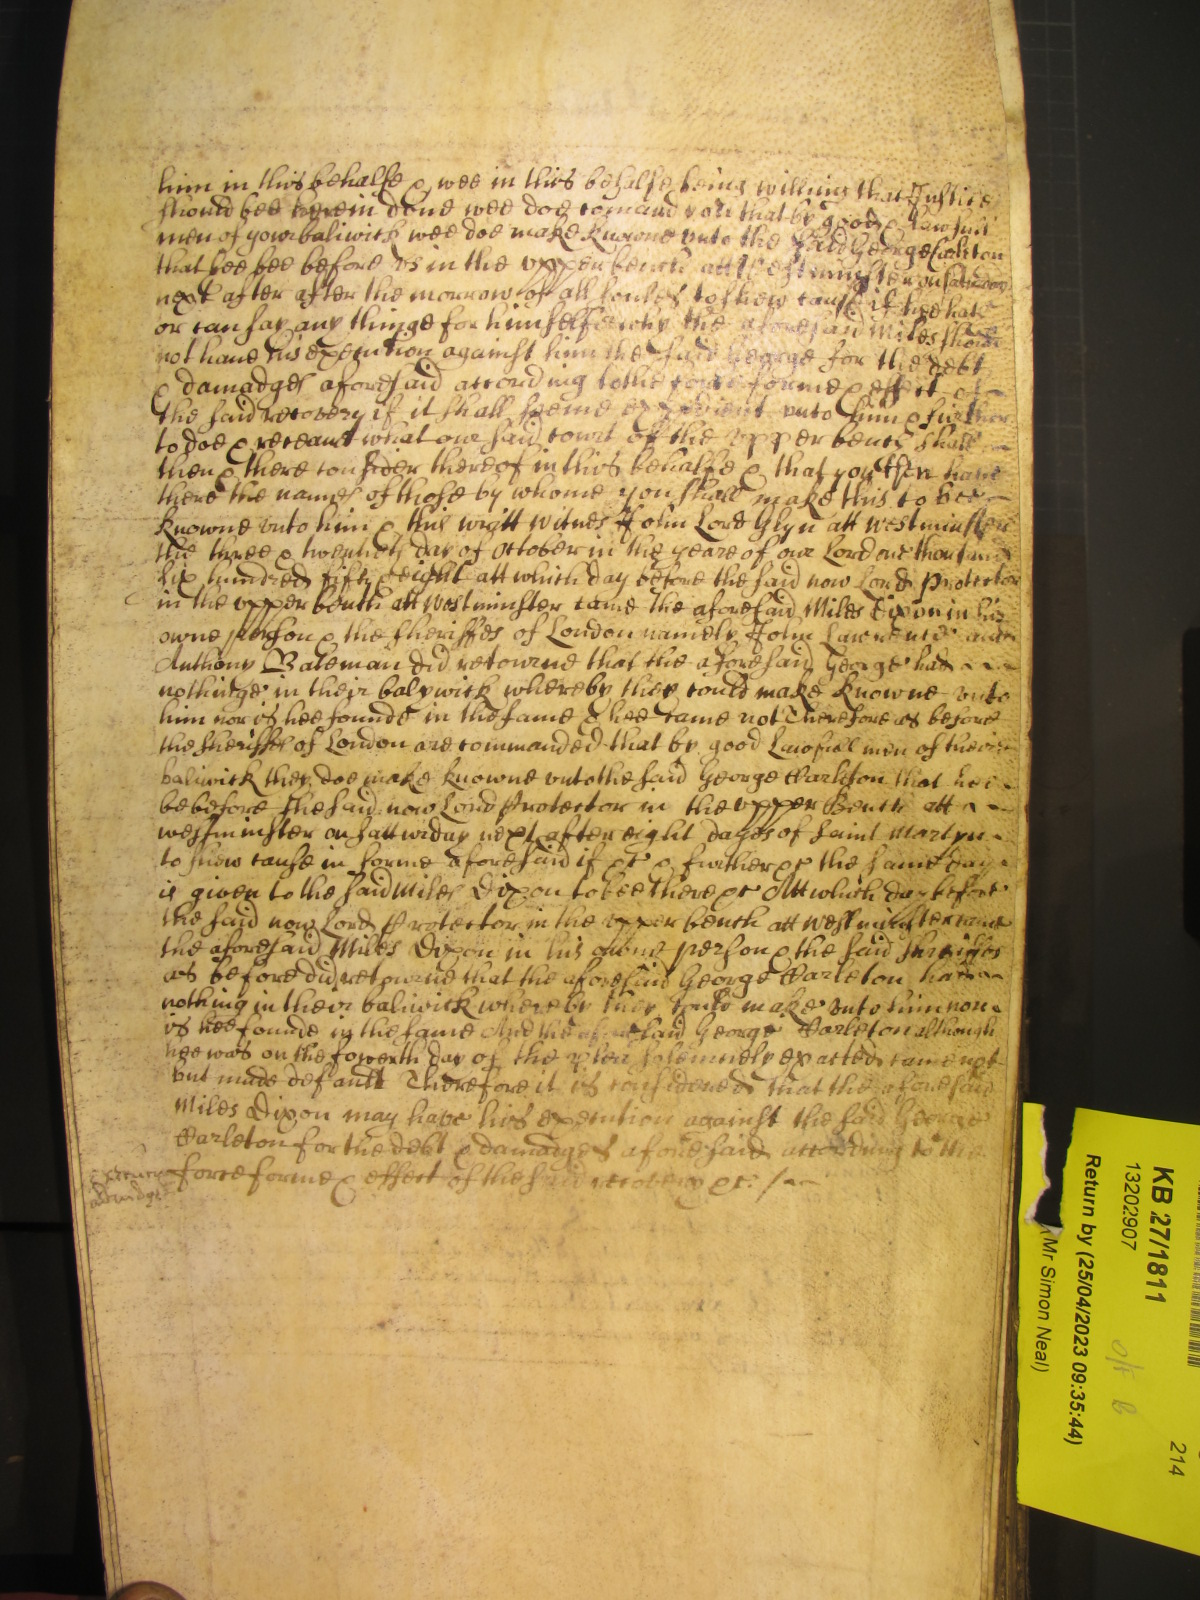 him in this behalfe & wee in this behalfe being willing that Justice
should bee herein done wee doe comand you that by good & lawfull
men of your baliwick wee doe make knowne vnto the said George Carleton
that hee bee before vs in the vpper bench att Westminster on
next after after the morrow of all soules to shew cause if hee hath
or can say any thinge for himselfe why the aforesaid Miles should
not haue his execution against him the said George for the debt
& damadges aforesaid according to the force forme & effect of
the said recovery if it shall seeme expedient vnto him & further
to doe & receaue what our said court of the vpper bench shall
then & there consider thereof in this behalfe & that you then haue
there the names of those by whome you shall make this to bee
knowne vnto him & this writt witnes John Lord Glyn att Westminster
the three & twentieth day of October in the yeare of our Lord one thousand
six hundred fifty & eight att which day before the said now Lord Protector
in the vpper bench att Westminster came the aforesaid Miles Dixon in his
owne person & the sheriffes of London namely John Lawrence and
Anthony Bateman did retourne that the aforesaid George had
nothinge in their balywick whereby they could make knowne vnto
him nor is hee founde in the same & hee came not Therefore as before
the sheriffes of London are commanded that by good Lawfull men of their
baliwick they doe make knowne vnto the said George Carleton that hee
be before the said now Lord Protector in the vpper Bench att
westminster on satturday next after eight dayes of Saint Martyn
to shew cause in forme aforesaid if &c & further &c the same day
is given to the said Miles Dixon to bee there &c Att which day before
the said now Lord Protector in the vpper bench att Westminster came
the aforesaid Miles Dixon in his owne person & the said sheriffes
as before did retourne that the aforesaid George Carleton had
nothing in their baliwick whereby they could make vnto him nor
is hee founde in the same And the aforesaid George Carleton although
hee was on the fowerth day of the plea solemnely exacted came not
but made default Therefore it is considered that the aforesaid
Miles Dixon may have his execution against the said George
Carleton for the debt & damadges aforesaid according to the
force forme & effect of the said recovery &c
KB 27/1811
13202907
Return by (25/04/2023 09:35:44)
(Mr Simon Neal)
214